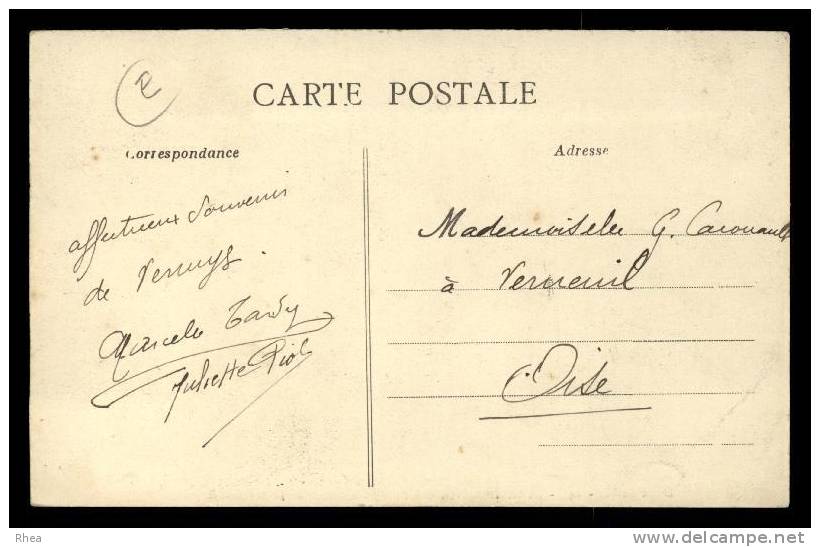 CARTE POSTALE
Correspondance
Adresse
affectueux Souvenir
de
Marcelle Tardy
Juliette
Mademoiselle G.
à Verneuil
Oise
Rhea
www.delcampe.net